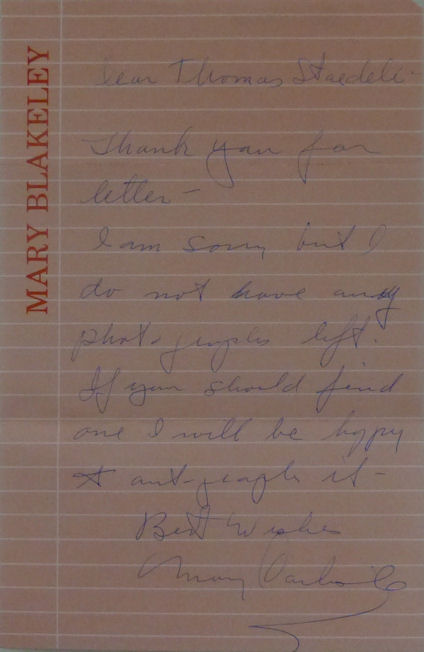 MARY BLAKELEY
Dear Thomas Staedeli -
Thank you for
letter -
I am sorry but I
do not have any
photographs left.
If you should find
one I will be happy
to autograph it -
Best Wishes
Mary Carlisle